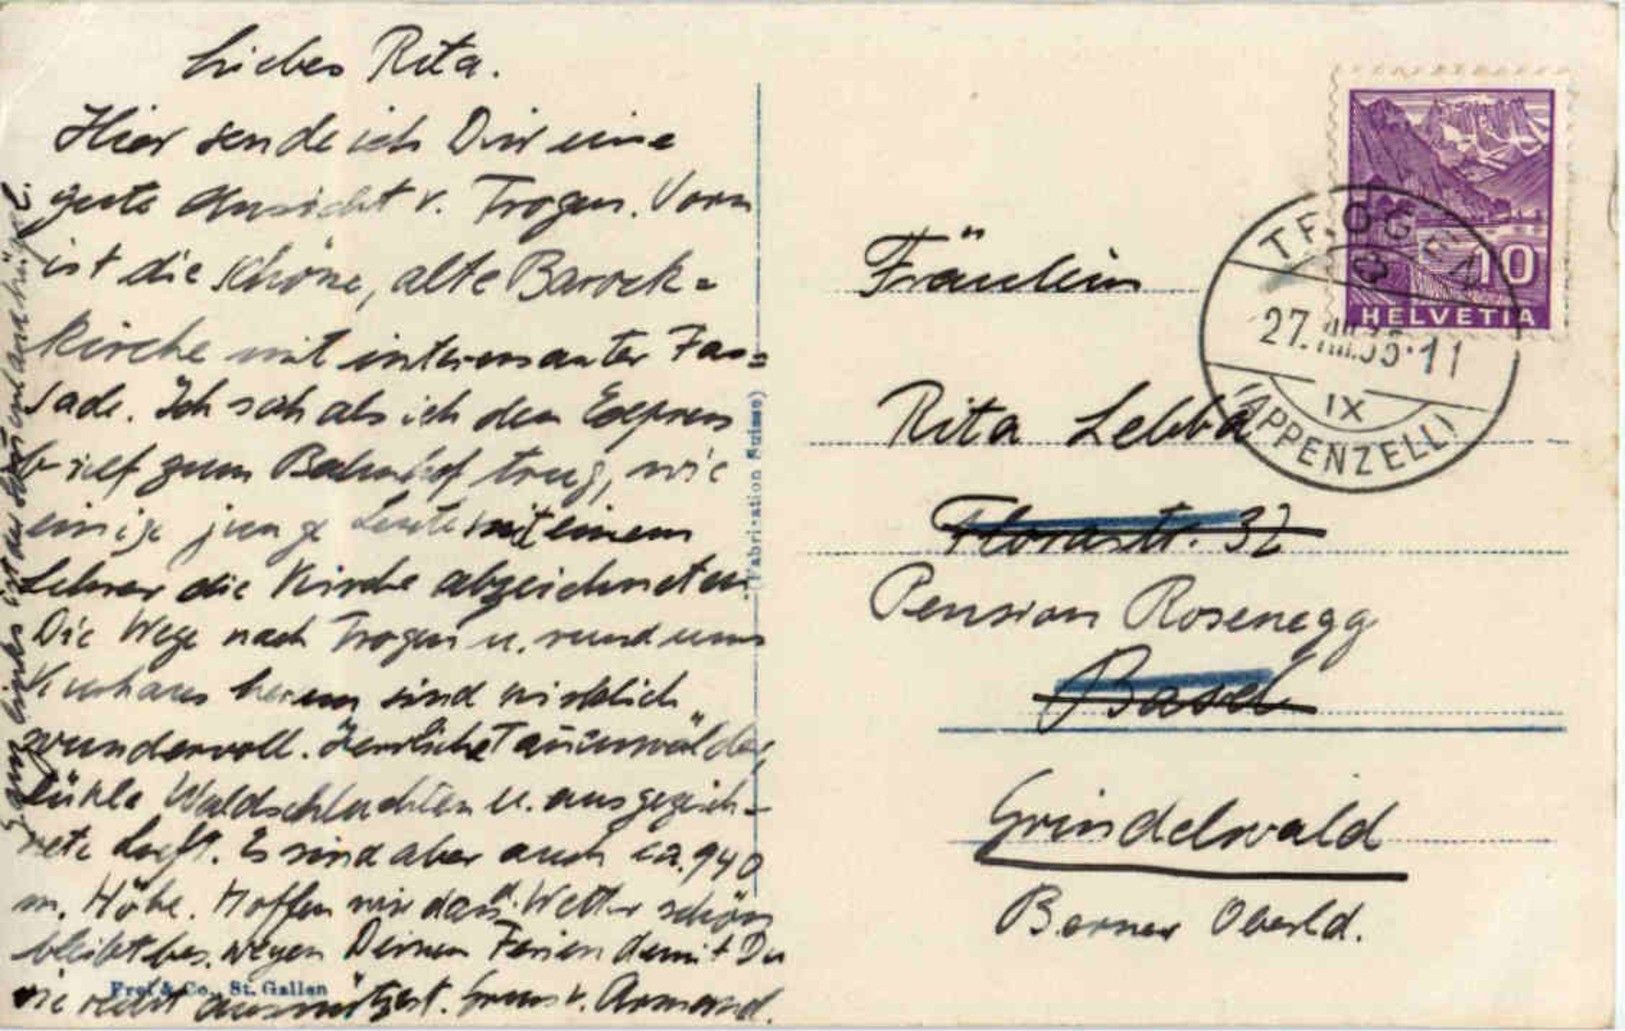 Liebes Rita.
Hier sende ich Dir eine
gute Ansicht v. Trogen. Vorn
ist die schöne, alte Barock=
kirche mit interessanter Fas=
sade. Ich sah als ich den Express
brief zum Bahnhof trug, wie
einige junge Leute mit einem
Lehrer die Kirche abzeichneten
Die Wege nach Trogen u. rund ums
Kurhaus herum sind wirklich
wundervoll. Herrliche Tannenwälder,
kühle Waldschluchten u. ausgezeich-
nete Luft. Es sind aber auch ca. 940
m. Höhe. Hoffen wir dass d. Wetter schön
bleibt bes. wegen Deinen Ferien damit Du
sie recht ausnützest. Gruss v. Armand.
Ganz links ist der
Frei & Co., St. Gallen
(Fabrication Suisse)
HELVETIA
10
TROGEN
27.VIII.35-11
IX
(APPENZELL)
Fräulein
Rita Lebbá
Florastr. 32
Pension Rosenegg
Basel
Grindelwald
Berner Oberld.